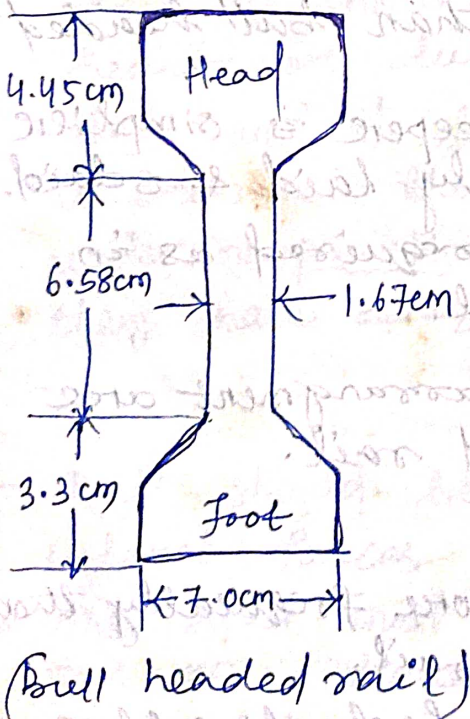 Head
4.45cm
6.58cm
1.67cm
3.3cm
Foot
7.0cm
(Bull headed rail)